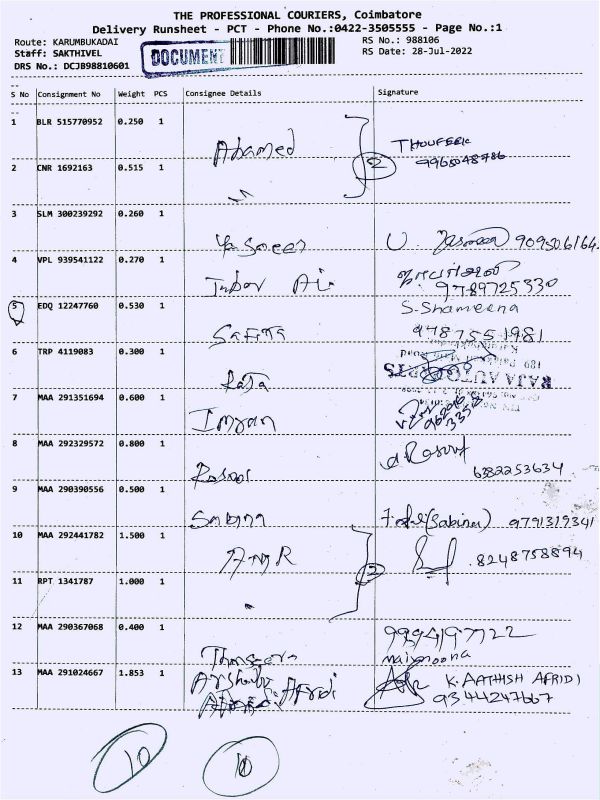 THE PROFESSIONAL COURIERS, Coimbatore
Delivery Runsheet - PCT - Phone No.:0422-3505555 - Page No.:1
Route: KARUMBUKADAI
RS No.: 988106
Staff: SAKTHIVEL
RS Date: 28-Jul-2022
DRS No.: DCJB98810601
DOCUMENT
S No Consignment No Weight PCS Consignee Details Signature
1 BLR 515770952 0.250 1
Ahamed
2
THOUFEEK
9965048786
2 CNR 1692163 0.515 1
3 SLM 300239292 0.260 1
Yasmeen
4 VPL 939541122 0.270 1
9789725330
5 EDQ 12247760 0.530 1
S. Shameena
Safina
9787551981
6 TRP 4119083 0.300 1
Raja
RAJA AUTO PARTS
7 MAA 291351694 0.600 1
Imran
8 MAA 292329572 0.800 1
Rasool
6382253634
9 MAA 290390556 0.500 1
Sabina
(Sabina) 9791319341
10 MAA 292441782 1.500 1
2
8248758894
11 RPT 1341787 1.000 1
12 MAA 290367068 0.400 1
9994197722
maimoona
13 MAA 291024667 1.853 1
Afridi
K. AATHISH AFRIDI
9344247667
10
10